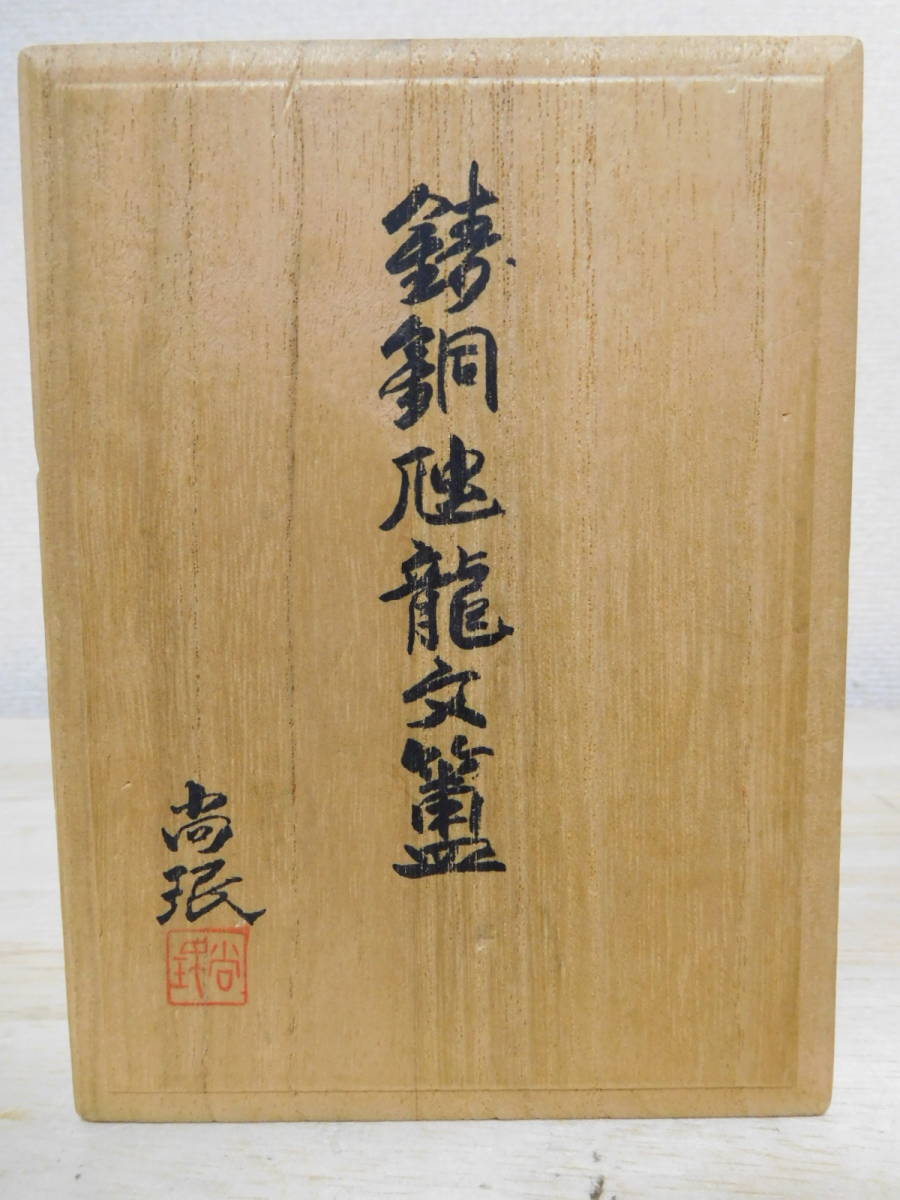 鋳銅虺龍文簠
尚珉
尚珉